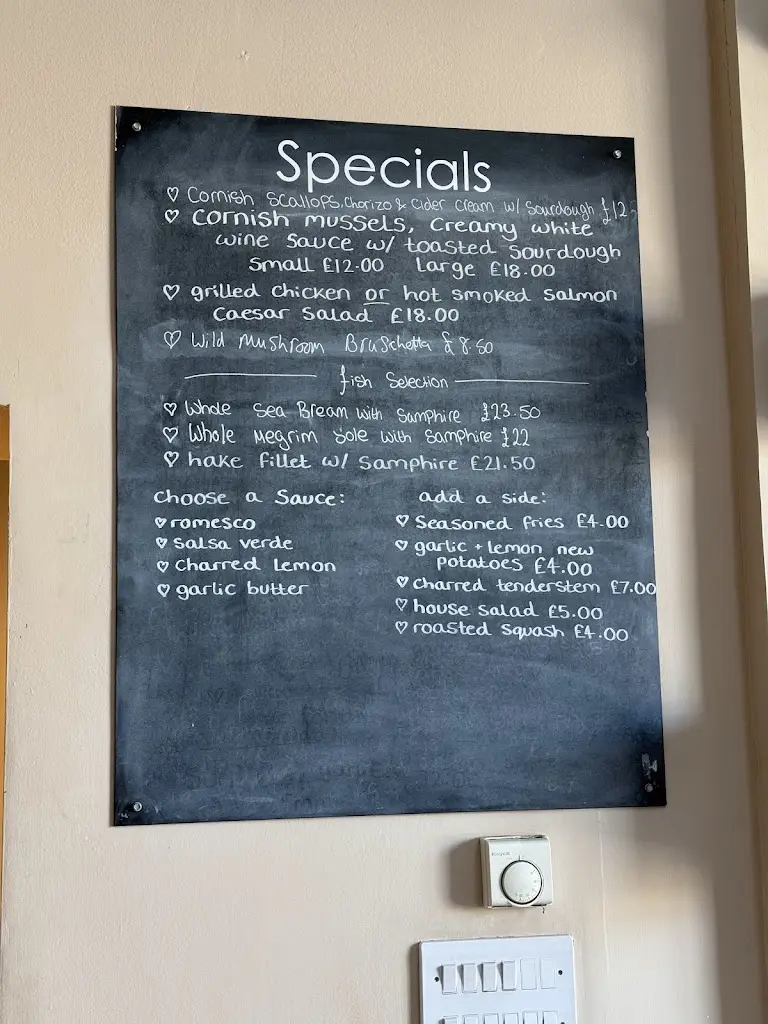 Specials
♡ Cornish scallops, Chorizo & Cider Cream w/ Sourdough £12
♡ Cornish mussels, Creamy white
wine sauce w/ toasted Sourdough
Small £12.00 large £18.00
♡ grilled chicken or hot smoked salmon
Caesar salad £18.00
♡ Wild Mushroom Bruschetta £8.50
fish Selection
♡ Whole Sea Bream with Samphire £23.50
♡ Whole Megrim Sole with Samphire £22
♡ hake fillet w/ Samphire £21.50
Choose a Sauce:
♡ romesco
♡ salsa verde
♡ Charred Lemon
♡ garlic butter
add a side:
♡ Seasoned fries £4.00
♡ garlic + lemon new
potatoes £4.00
♡ charred tenderstem £7.00
♡ house salad £5.00
♡ roasted squash £4.00